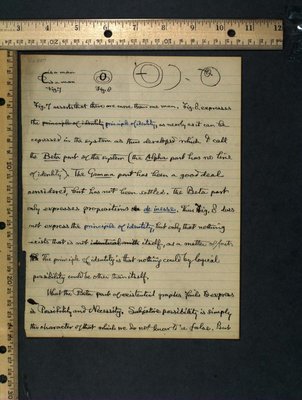 is a man
is a man
Fig. 7
Fig. 8
Fig. 7 asserts that there are more than one man. Fig. 8, expresses
the principle of identity principle of identity, as nearly as it can be
expressed in the system as thus developed which I call
the Beta part of the system (the Alpha part has no line
of identity). The Gamma part has been a good deal
considered, but has not been settled. The Beta part
only expresses propositions de inesse. Thus Fig. 8 does
not express the principle of identity, but only that nothing
exists that is not identical with itself, as a matter of fact.
The principle of identity is that nothing could by logical
possibility could be other than itself.
What the Beta part of existential graphs fails to express
is Possibility and Necessity. Subjective possibility is simply
the character of that which we do not know to be false. But